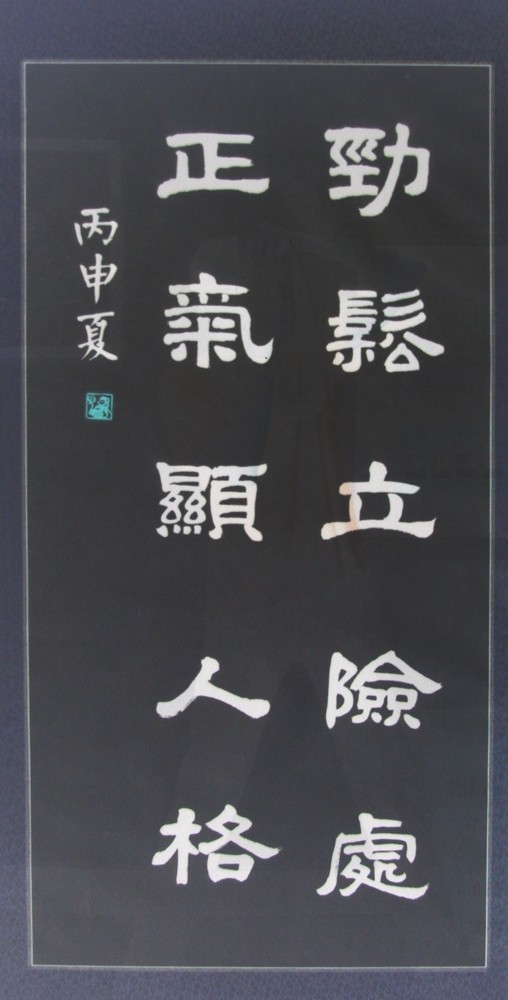 勁鬆立險處
正氣顯人格
丙申夏